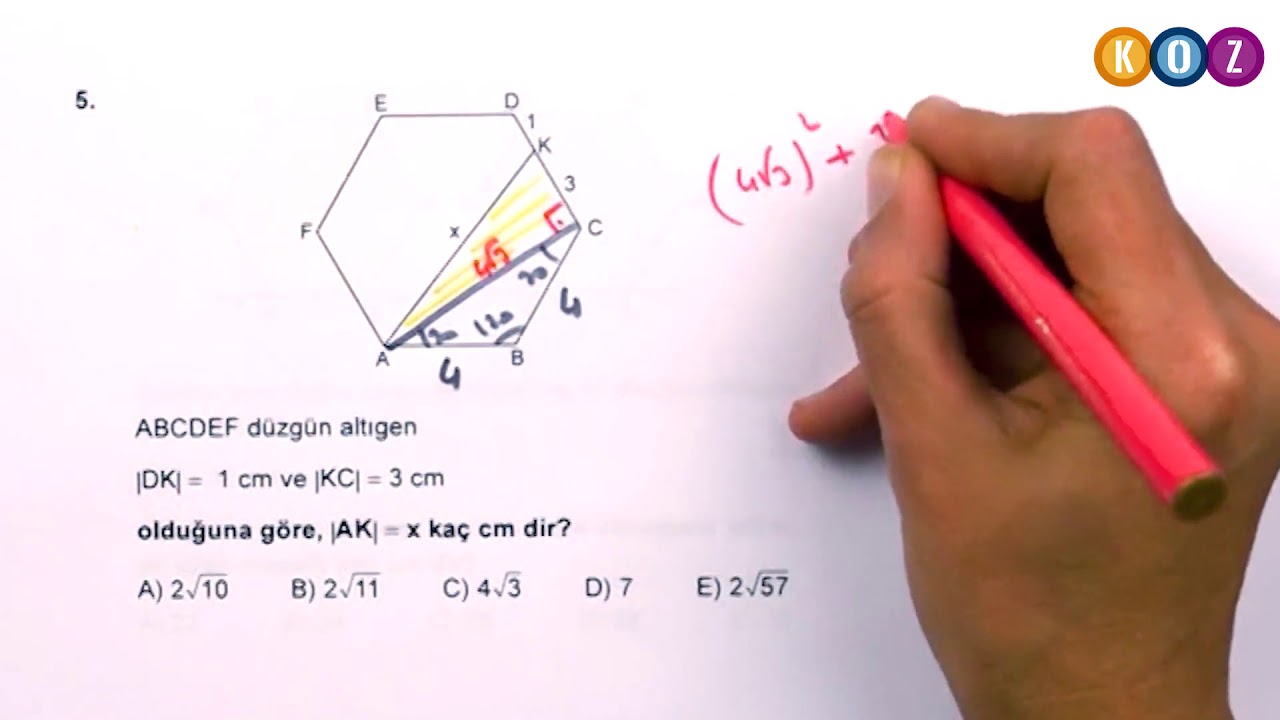 KOZ
5.
E D
1
K
3
F x 4√3 C
30
4
30 120
A B
4
(4√3)² +
ABCDEF düzgün altıgen
|DK| = 1 cm ve |KC| = 3 cm
olduğuna göre, |AK| = x kaç cm dir?
A) 2√10 B) 2√11 C) 4√3 D) 7 E) 2√57